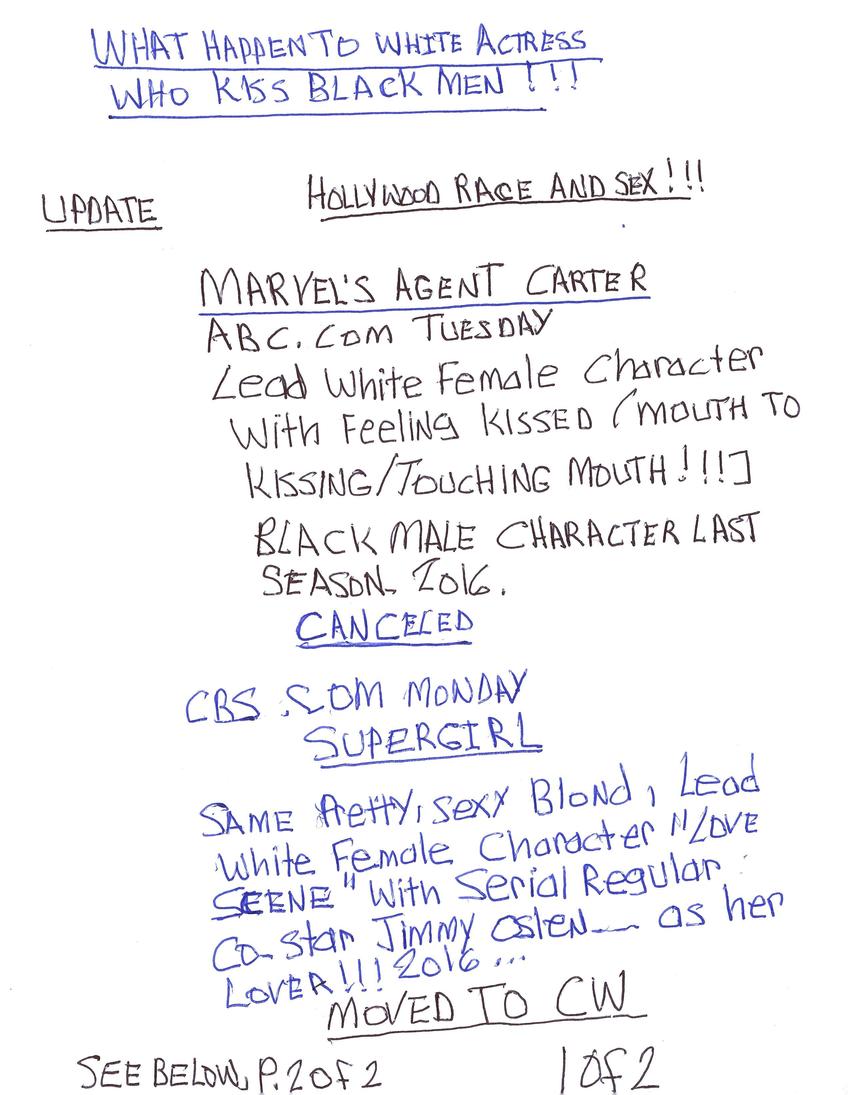 WHAT HAPPEN TO WHITE ACTRESS
WHO KISS BLACK MEN !!!
UPDATE
HOLLYWOOD RACE AND SEX!!!
MARVEL'S AGENT CARTER
ABC.COM TUESDAY
Lead White Female Character
With Feeling KISSED (MOUTH TO
KISSING/TOUCHING MOUTH!!!]
BLACK MALE CHARACTER LAST
SEASON- 2016.
CANCELED
CBS .COM MONDAY
SUPERGIRL
SAME Pretty, sexy Blond, Lead
White Female Character "LOVE
SEENE" With Serial Regular
Co-star Jimmy Oslen__ as her
LOVER!!! 2016 ...
MOVED TO CW
SEE BELOW, P. 2 OF 2
1 Of 2